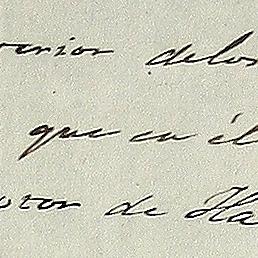 erior delos
que en él
or de Ha